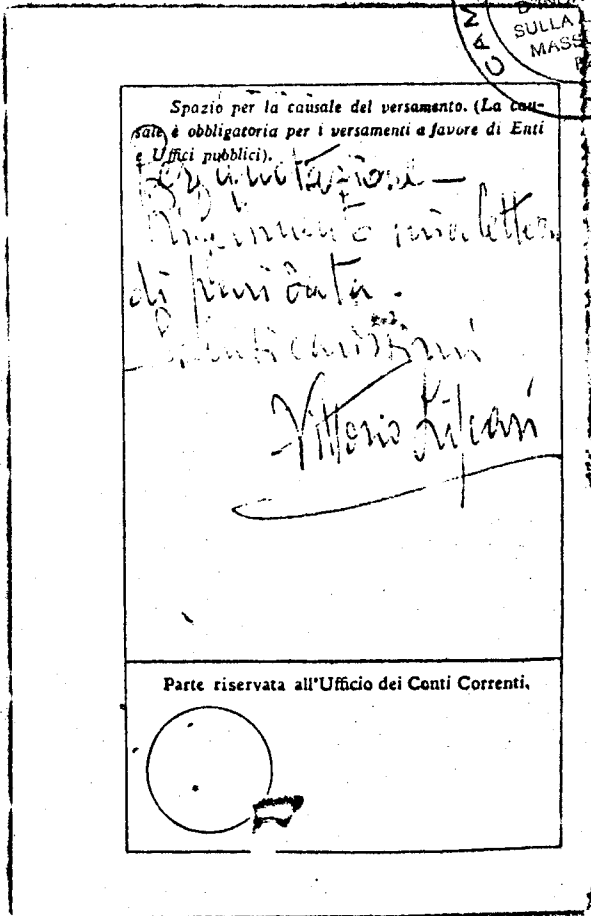 CAM
SULLA
MASS
Spazio per la causale del versamento. (La cau-
sale è obbligatoria per i versamenti a favore di Enti
e Uffici pubblici).
Per quotazione —
mia lettera
di pari data.
Vittorio
Parte riservata all'Ufficio dei Conti Correnti.